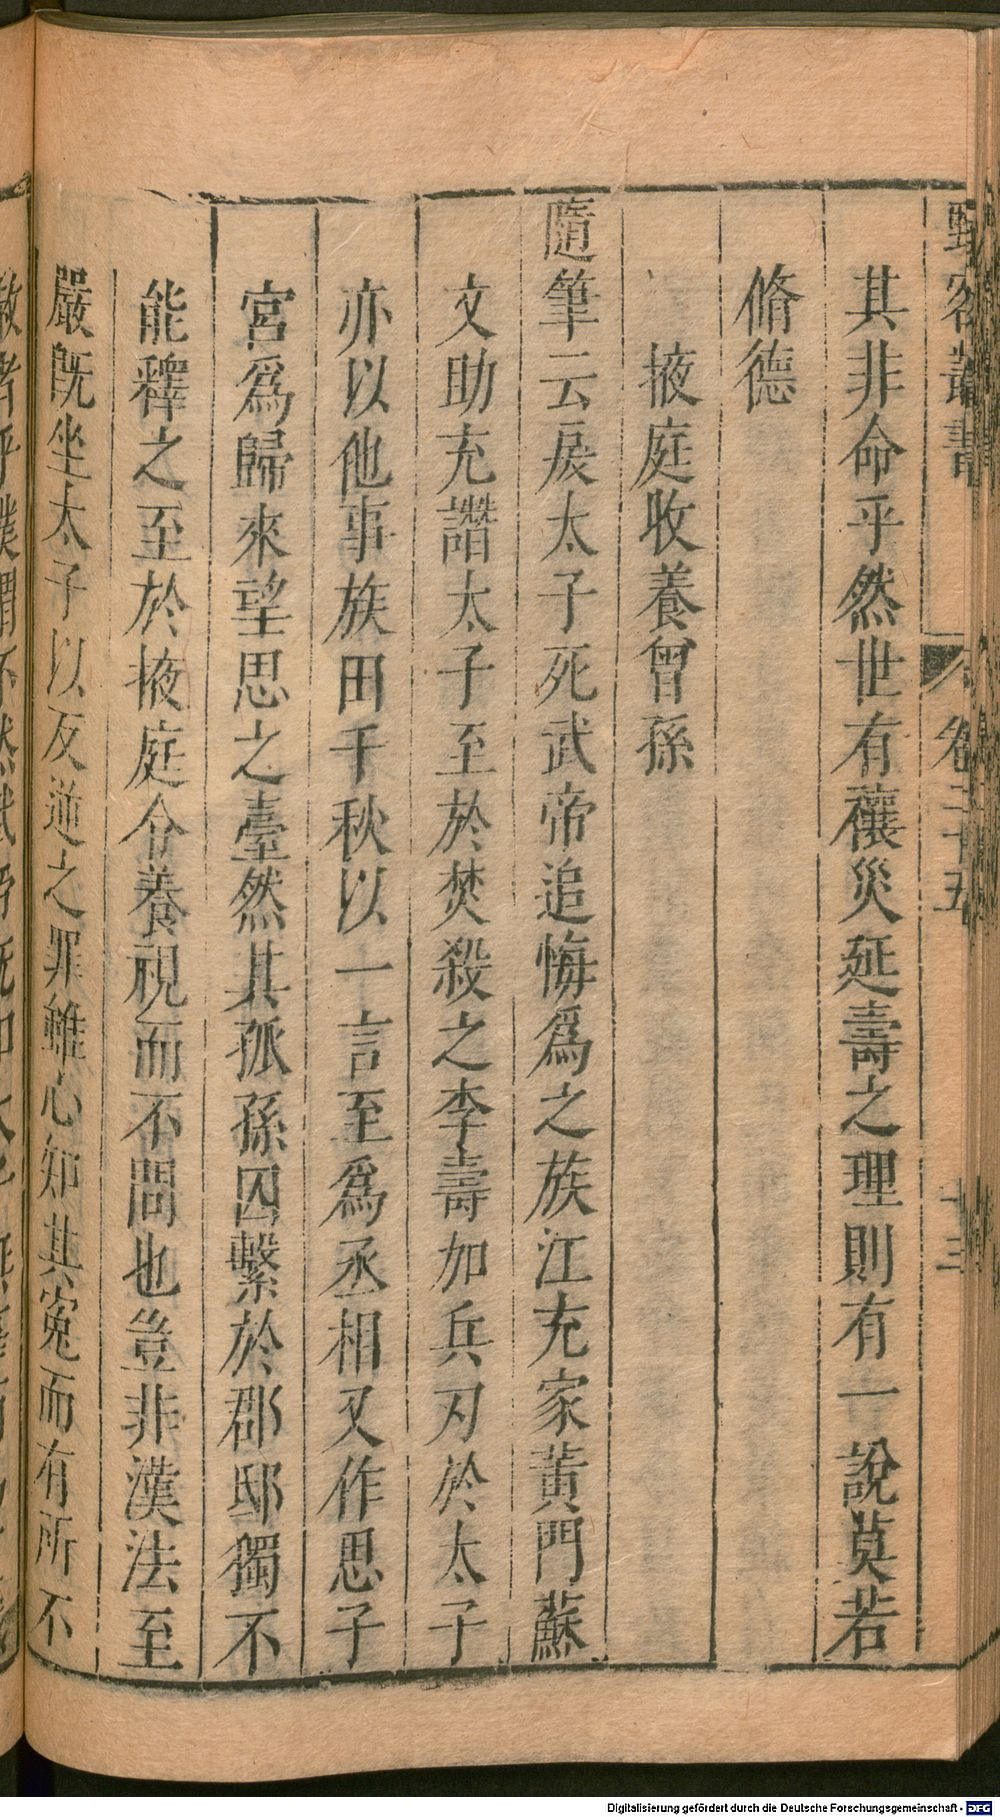 野客叢書 卷二十五 十三
其非命乎然世有禳災延壽之理則有一說莫若
脩德
掖庭收養曾孫
隨筆云戾太子死武帝追悔爲之族江充家黃門蘇
文助充譖太子至於焚殺之李壽加兵刃於太子
亦以他事族田千秋以一言至爲丞相又作思子
宮爲歸來望思之臺然其孤孫囚繫於郡邸獨不
能釋之至於掖庭令養視而不問也豈非漢法至
嚴旣坐太子以反逆之罪雖心知其寃而有所不
Digitalisierung gefördert durch die Deutsche Forschungsgemeinschaft - DFG